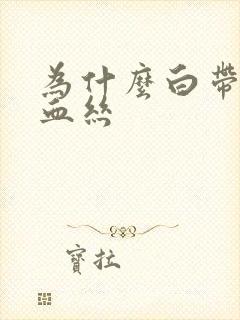 為什麼白帶
血絲
寶拉